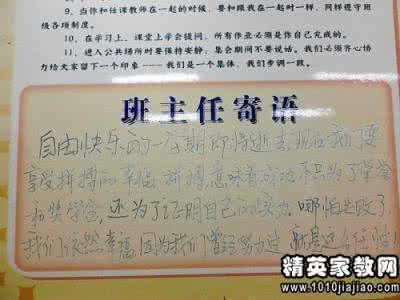 9、当你和任课教师在一起的时候，要和跟我在一起时一样，同样遵守班
级各项制度。
10、在学习上，课堂上学会提问，所有作业必须是你自己完成的。
11、进入公共场所时要保持安静；集会期间不要说话。我们必须齐心协
力给大家留下一个印象——我们是一个集体，我们步调一致。
班主任寄语
自由快乐的一星期即将逝去，现在我们要
享受拼搏的幸福，拼搏意味着成功，不只为了荣誉
和奖学金，还为了证明自己的实力。哪怕失败了，
我们依然幸福，因为我们曾经努力过，就是这么任性！
精英家教网
www.1010jiajiao.com